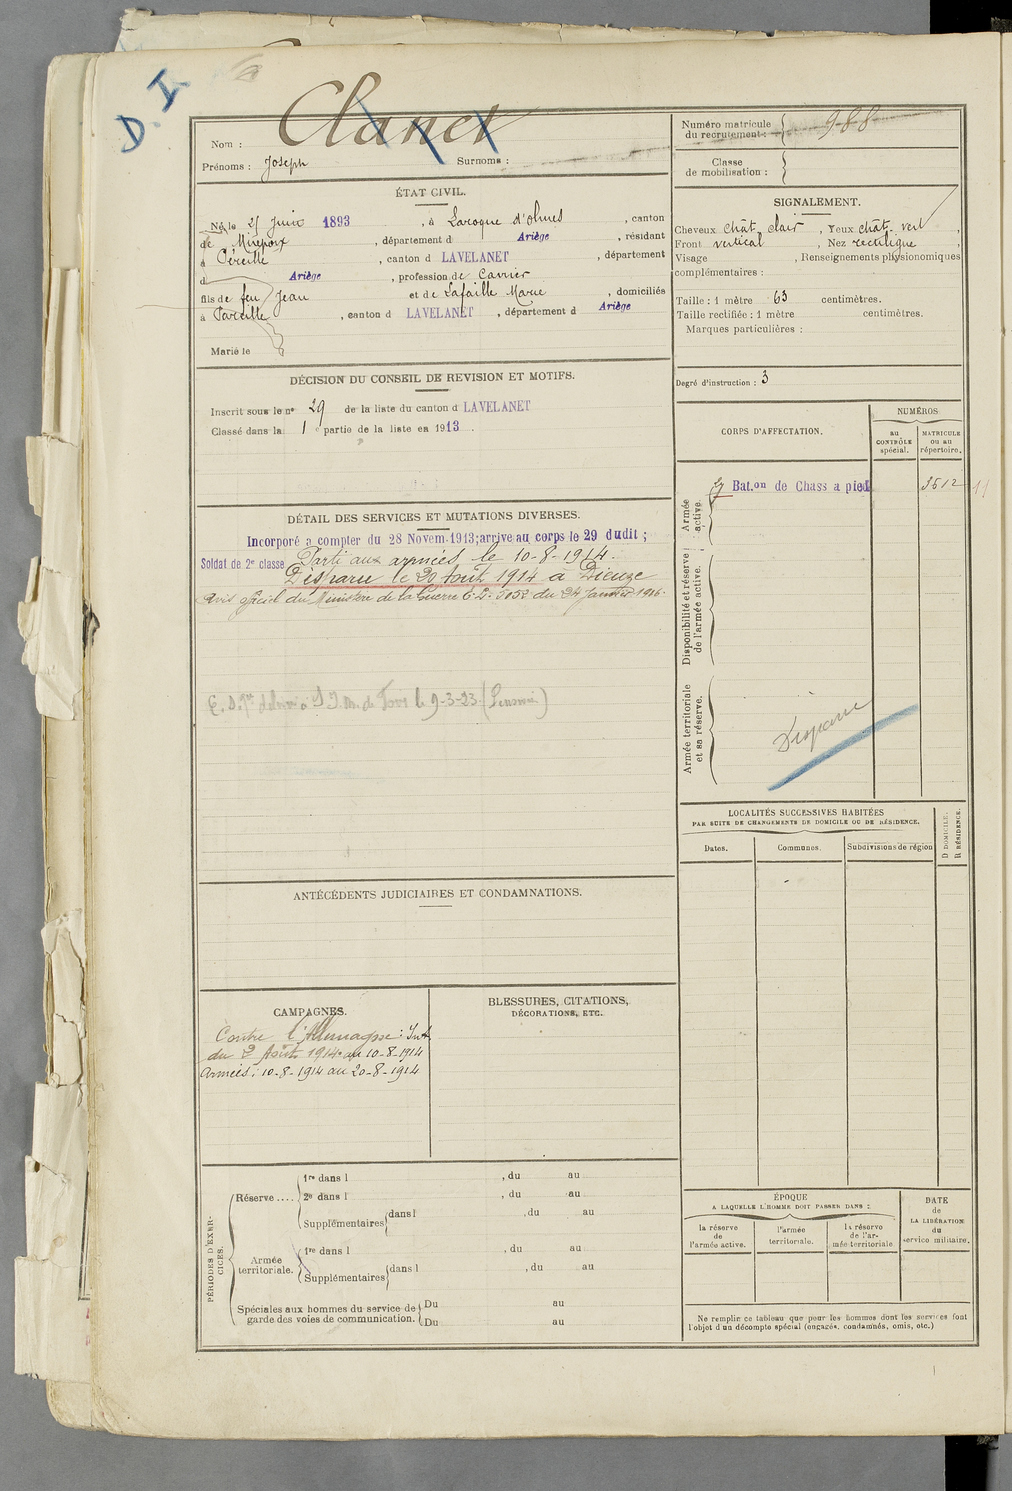 D. I.
Nom : Clanet
Prénoms : Joseph Surnoms :
Numéro matricule du recrutement : 988
Classe de mobilisation :
ÉTAT CIVIL.
Né le 25 Juin 1893, à Laroque d'olmes, canton
de Mirepoix, département d Ariège, résidant
à Péreille, canton d LAVELANET, département
d Ariège, profession de Carrier
fils de feu Jean et de Lafaille Marie, domiciliés
à Pareille, canton d LAVELANET, département d Ariège
Marié le
SIGNALEMENT.
Cheveux chât. clair, Yeux chât. vert,
Front vertical, Nez rectiligne,
Visage , Renseignements physionomiques
complémentaires :
Taille : 1 mètre 63 centimètres.
Taille rectifiée : 1 mètre centimètres.
Marques particulières :
Degré d'instruction : 3
DÉCISION DU CONSEIL DE REVISION ET MOTIFS.
Inscrit sous le no 29 de la liste du canton d LAVELANET
Classé dans la 1e partie de la liste en 1913.
CORPS D'AFFECTATION.
NUMÉROS
AU CONTRÔLE spécial.
MATRICULE ou au répertoire.
Armée active.
Bat.on de Chass a pied 3612
Disponibilité et réserve de l'armée active.
Armée territoriale et sa réserve.
Disparu
DÉTAIL DES SERVICES ET MUTATIONS DIVERSES.
Incorporé a compter du 28 Novem. 1913; arrive au corps le 29 dudit ;
Soldat de 2e classe Parti aux armées le 10-8-1914.
Disparu le 20 Août 1914 à Dieuze
Avis officiel du Ministère de la Guerre du 24 Janvier 1916.
le 9-3-23 (Pension)
LOCALITÉS SUCCESSIVES HABITÉES
PAR SUITE DE CHANGEMENTS DE DOMICILE OU DE RÉSIDENCE.
Dates.
Communes.
Subdivisions de région
D DOMICILE.
R RÉSIDENCE.
ANTÉCÉDENTS JUDICIAIRES ET CONDAMNATIONS.
CAMPAGNES.
Contre l'Allemagne : Int
du 2 Août 1914 au 10-8-1914
Armées : 10-8-1914 au 20-8-1914
BLESSURES, CITATIONS,
DÉCORATIONS, ETC.
PÉRIODES D'EXERCICES.
Réserve ....
1re dans l , du au
2e dans l , du au
Supplémentaires dans l , du au
Armée territoriale.
1re dans l , du au
Supplémentaires dans l , du au
Spéciales aux hommes du service de
garde des voies de communication.
Du au
Du au
ÉPOQUE
A LAQUELLE L'HOMME DOIT PASSER DANS :
la réserve de l'armée active.
l'armée territoriale.
la réserve de l'armée territoriale
DATE de LA LIBÉRATION du service militaire.
Ne remplir ce tableau que pour les hommes dont les services font
l'objet d'un décompte spécial (engagés, condamnés, omis, etc.)